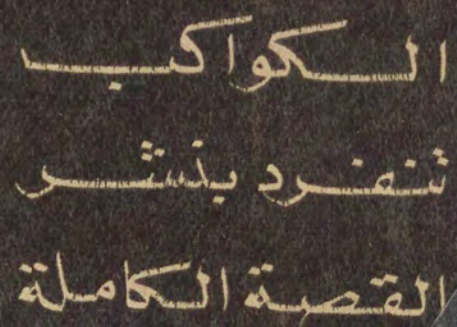 الكواكب
تنفرد بنشر
القصة الكاملة